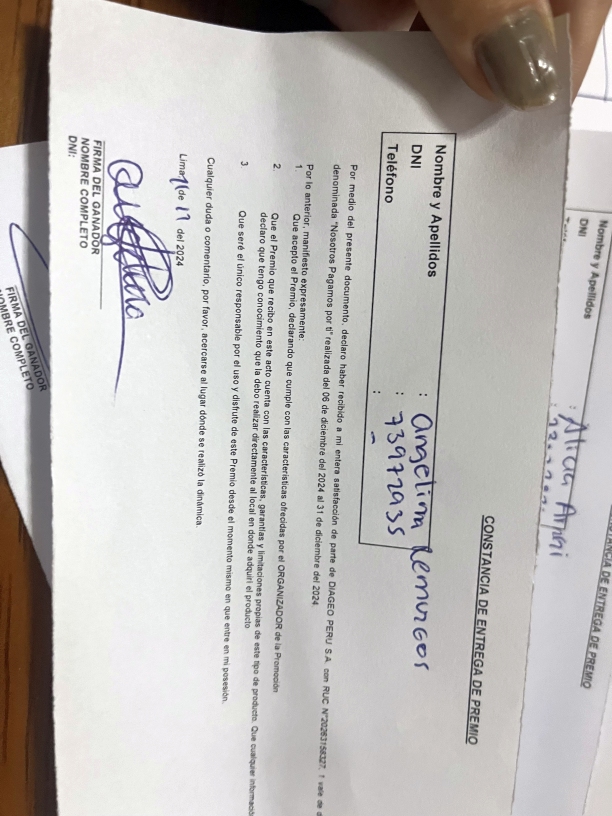 CONSTANCIA DE ENTREGA DE PREMIO
Nombre y Apellidos : Angelina Remuzgos
DNI : 73972935
Teléfono : -
Por medio del presente documento, declaro haber recibido a mi entera satisfacción de parte de DIAGEO PERU S.A. con RUC N°20263158327, 1 vale de
denominada "Nosotros Pagamos por ti" realizada del 06 de diciembre del 2024 al 31 de diciembre del 2024.
Por lo anterior, manifiesto expresamente:
1. Que acepto el Premio, declarando que cumple con las características ofrecidas por el ORGANIZADOR de la Promoción
2. Que el Premio que recibo en este acto cuenta con las características, garantías y limitaciones propias de este tipo de producto. Que cualquier
declaro que tengo conocimiento que la debo realizar directamente al local en donde adquirí el producto
3. Que seré el único responsable por el uso y disfrute de este Premio desde el momento mismo en que entre en mi posesión.
Cualquier duda o comentario, por favor, acercarse al lugar dónde se realizó la dinámica.
Lima, de del 2024
FIRMA DEL GANADOR
NOMBRE COMPLETO
DNI:
DE ENTREGA DE PREMIO
Nombre y Apellidos :
DNI :
FIRMA DEL GANADOR
NOMBRE COMPLETO